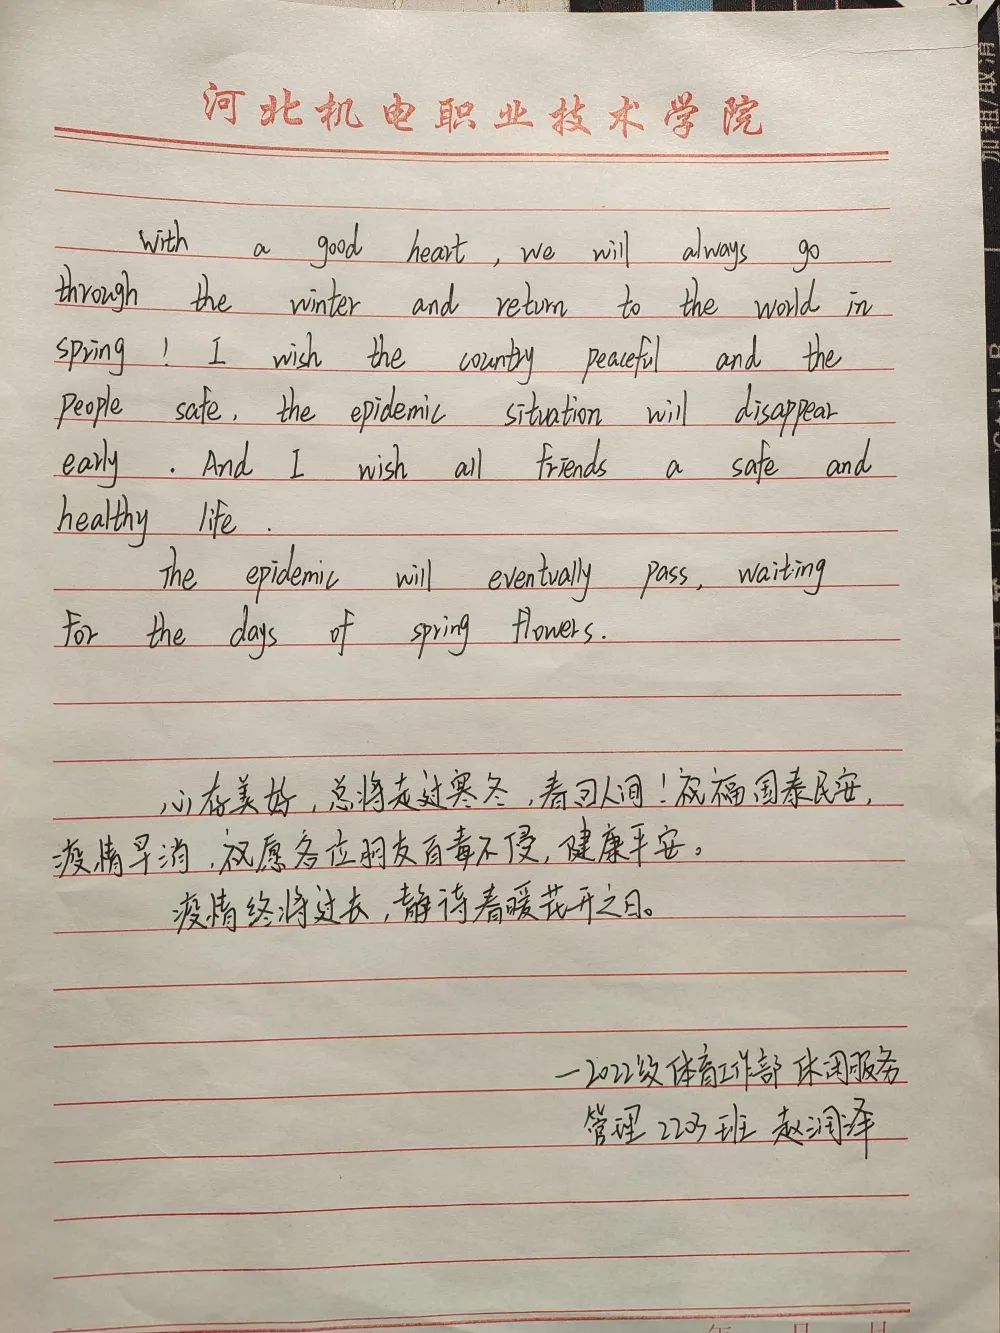 河北机电职业技术学院
With a good heart, we will always go
through the winter and return to the world in
spring! I wish the country peaceful and the
people safe. the epidemic situation will disappear
early. And I wish all friends a safe and
healthy life.
The epidemic will eventually pass, waiting
for the days of spring flowers.
心存美好，总将走过寒冬，春回人间！祝福国泰民安，
疫情早消，祝愿各位朋友百毒不侵，健康平安。
疫情终将过去，静待春暖花开之日。
—2022级体育工作部 休闲服务
管理2203班 赵润泽
年 月 日
加粗/取消